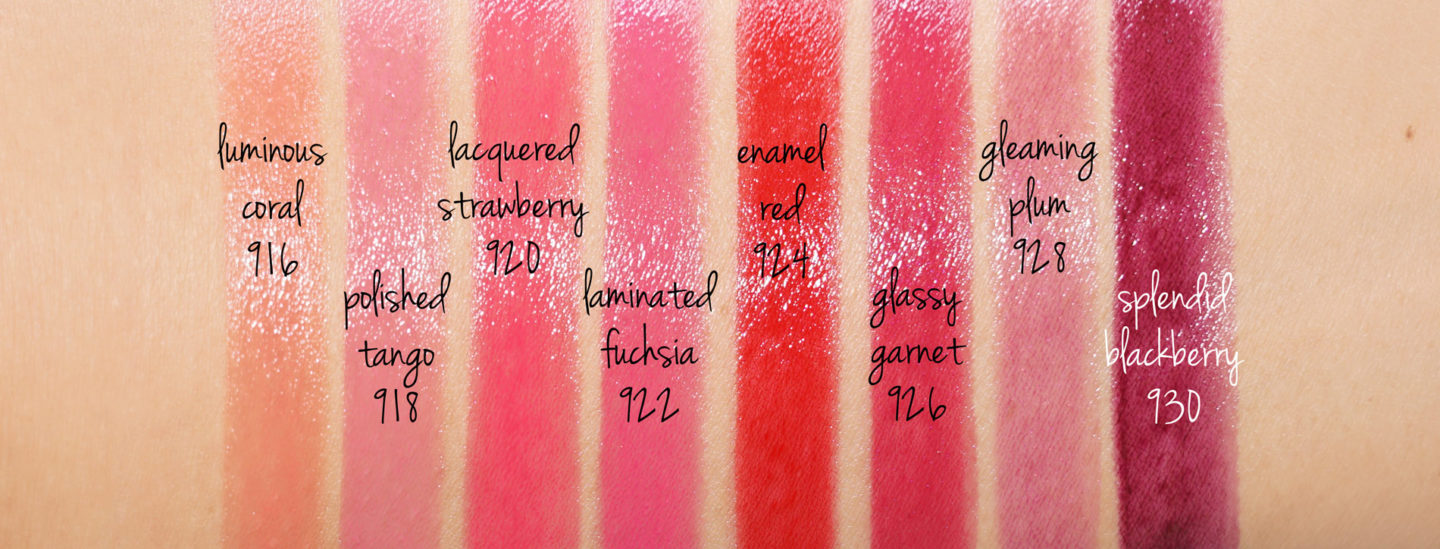 luminous
coral
916
polished
tango
918
lacquered
strawberry
920
laminated
fuchsia
922
enamel
red
924
glassy
garnet
926
gleaming
plum
928
splendid
blackberry
930